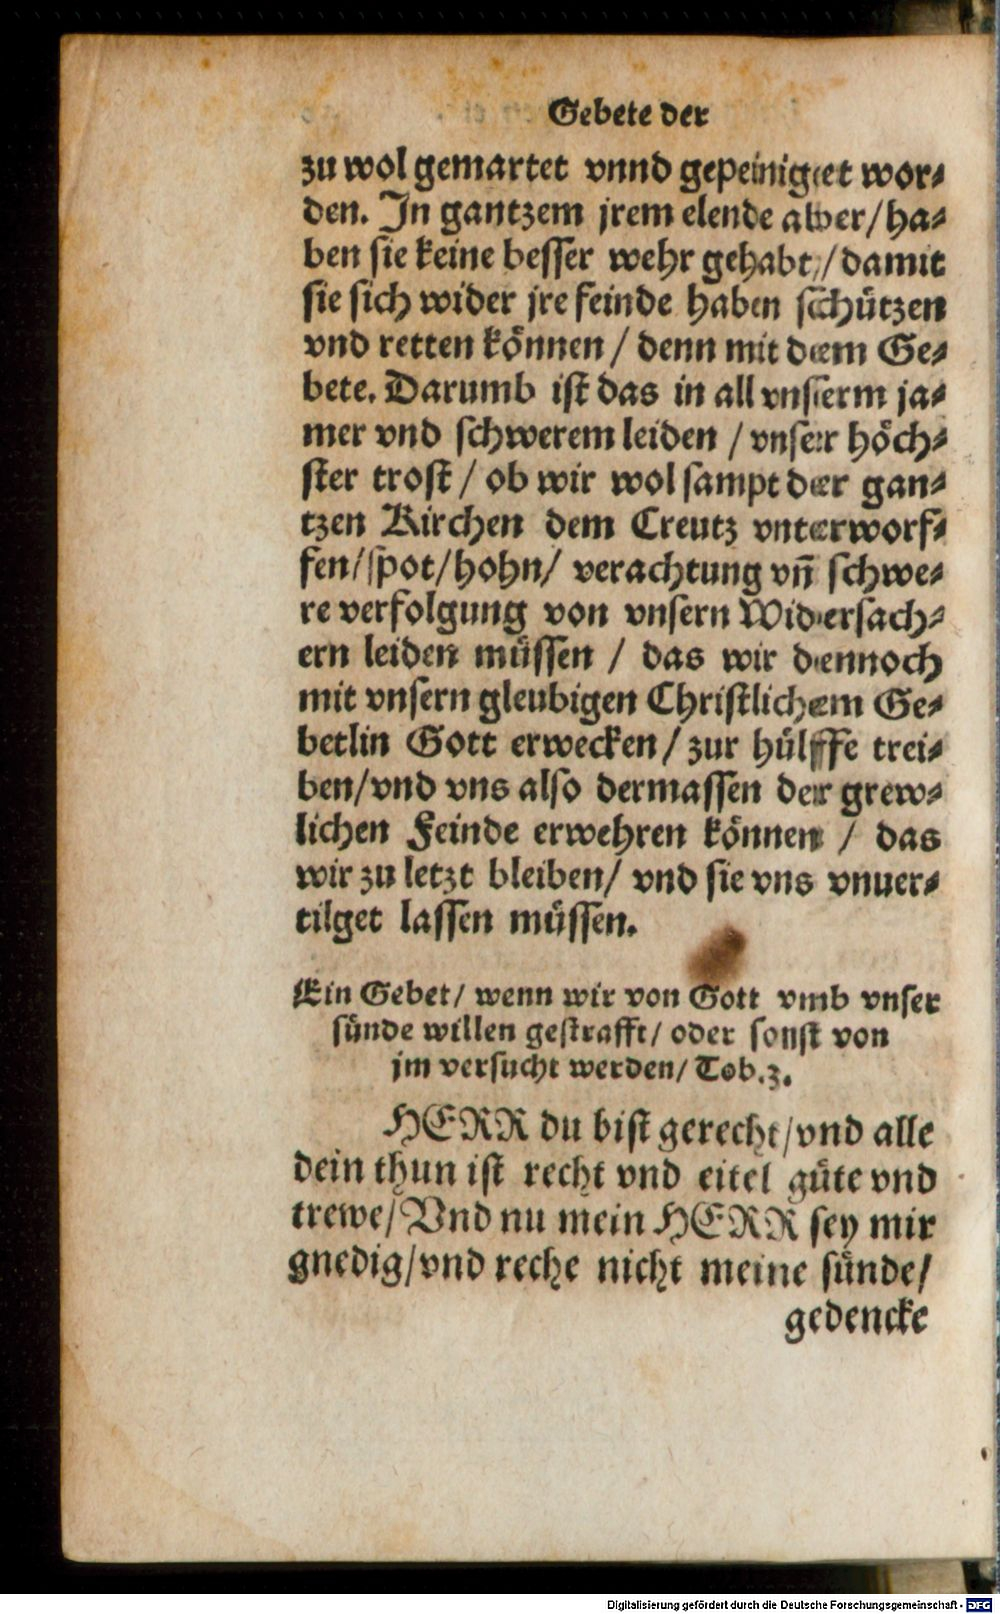 Gebete der
zu wol gemartet vnnd gepeiniget wor⸗
den. In gantzem jrem elende aber/ ha⸗
ben sie keine besser wehr gehabt/ damit
sie sich wider jre feinde haben schützen
vnd retten können / denn mit dem Ge⸗
bete. Darumb ist das in all vnserm ja⸗
mer vnd schwerem leiden / vnser höch⸗
ster trost / ob wir wol sampt der gan⸗
tzen Kirchen dem Creutz vnterworf⸗
fen/ spot/ hohn/ verachtung vn̄ schwe⸗
re verfolgung von vnsern Widersach⸗
ern leiden müssen / das wir dennoch
mit vnsern gleubigen Christlichem Ge⸗
betlin Gott erwecken/ zur hülffe trei⸗
ben/ vnd vns also dermassen der grew⸗
lichen Feinde erwehren können / das
wir zu letzt bleiben/ vnd sie vns vnuer⸗
tilget lassen müssen.
Ein Gebet/ wenn wir von Gott vmb vnser
sünde willen gestrafft/ oder sonst von
jm versucht werden/ Tob.3.
HERR du bist gerecht/ vnd alle
dein thun ist recht vnd eitel güte vnd
trewe/ Vnd nu mein HERR sey mir
gnedig/ vnd reche nicht meine sünde/
gedencke
Digitalisierung gefördert durch die Deutsche Forschungsgemeinschaft - DFG